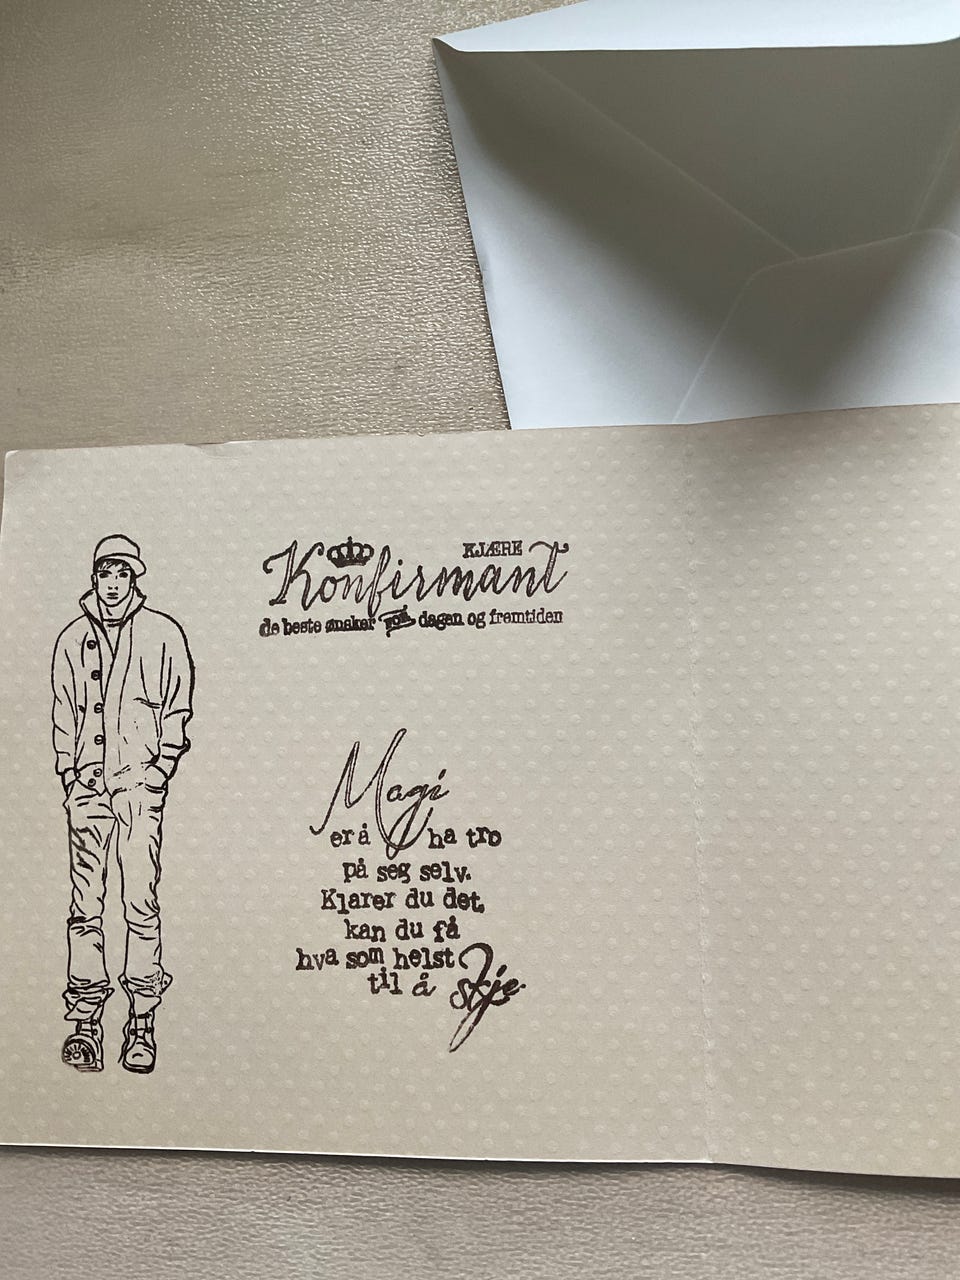 KJÆRE
Konfirmant
de beste ønsker FOR dagen og fremtiden
Magi
er å ha tro
på seg selv.
Klarer du det,
kan du få
hva som helst
til å skje.